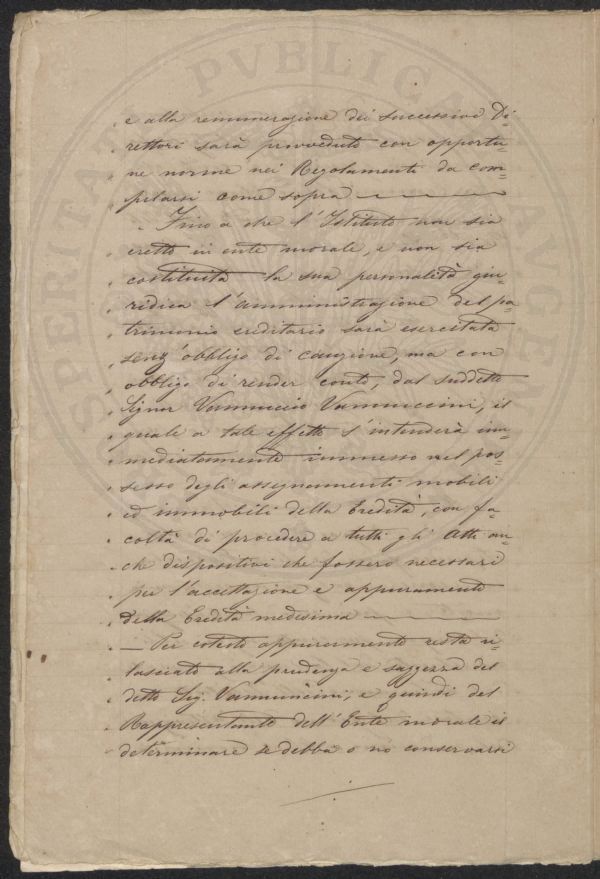 PERITIA PVBLICA AVGEN
« e alla remunerazione dei successivi Di=
« rettori sarà provveduto con opportu=
« ne norme nei Regolamenti da com=
« pilarsi come sopra ————
« — Fino a che l'Istituto non sia
« eretto in ente morale, e non sia
« costituita la sua personalità giu=
« ridica l'amministrazione del pa=
« trimonio ereditario sarà esercitata
« senz'obbligo di cauzione, ma con
« obbligo di render conto, dal suddetto
« Signor Vannuccio Vannuccini, il
« quale a tale effetto s'intenderà im=
« mediatamente immesso nel pos=
« sesso degli assegnamenti mobili
« ed immobili della Eredità, con fa=
« coltà di procedere a tutti gli Atti an=
« che dispositivi che fossero necessari
« per l'accettazione e appuramento
« della Eredità medesima ————
« — Per cotesto appuramento resta ri=
« lasciato alla prudenza e saggezza del
« detto Sig. Vannuccini, e quindi del
« Rappresentante dell'Ente morale il
« determinare se debba o no conservarsi